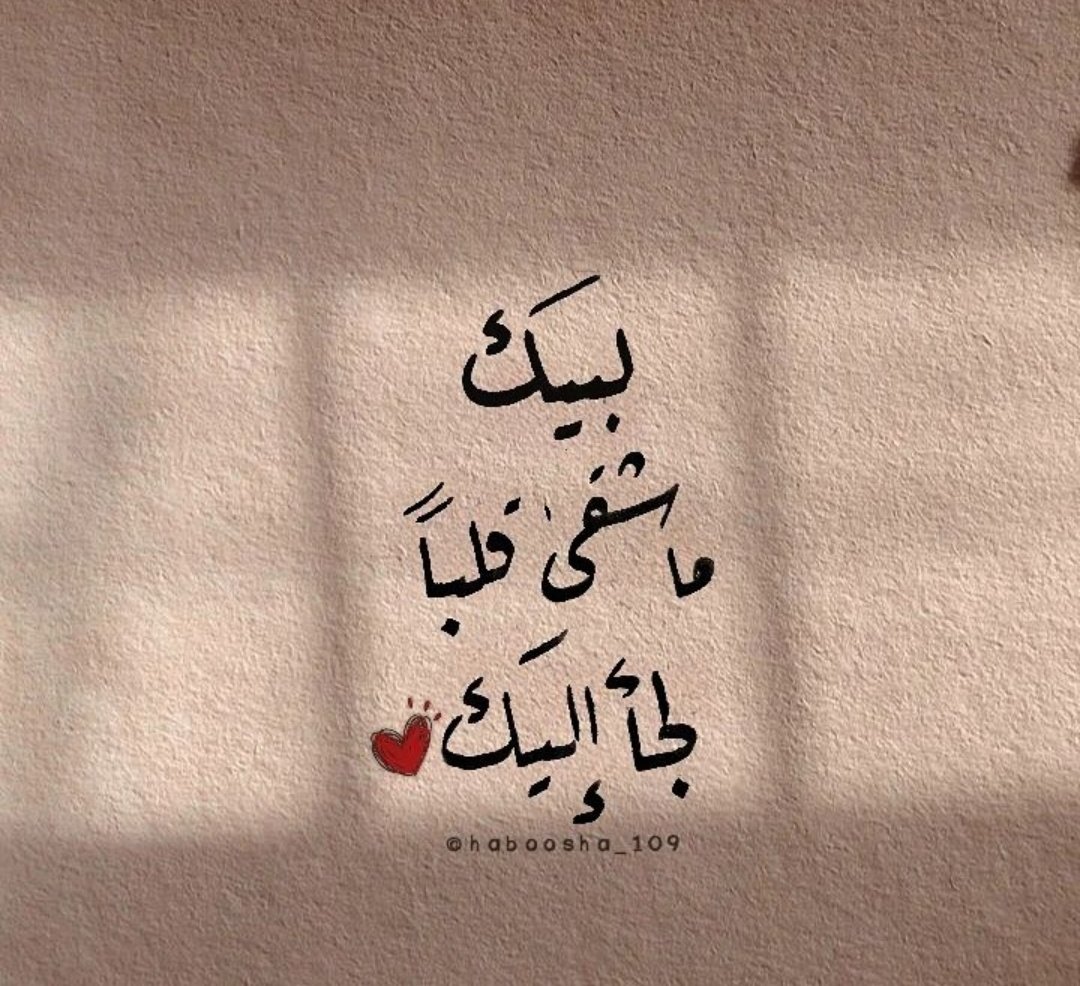 لبيكَ
ما شقىٰ قلباً
لجأ إليكَ
@haboosha_109